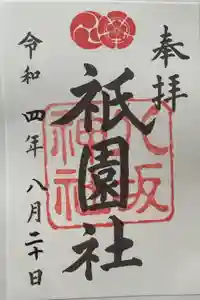 奉拝
八坂神社
祇園社
令和四年八月二十日